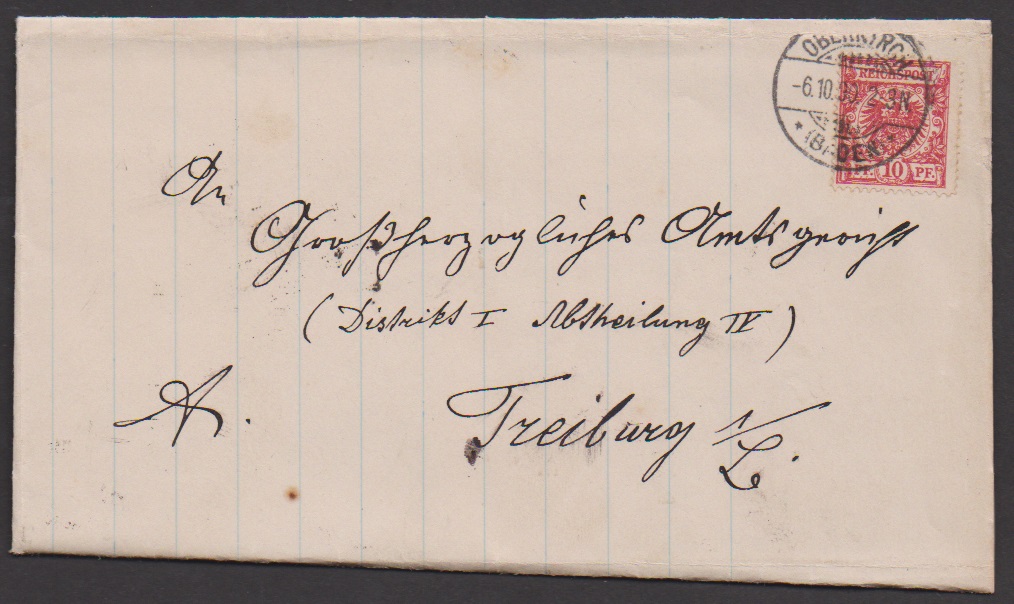 OBERKIRCH
-6.10.00. 2-3N
* (BADEN) *
REICHSPOST
PF. 10 PF.
An
Großherzogliches Amtsgericht
(Distrikt I Abtheilung IV)
A.
Freiburg i/B.